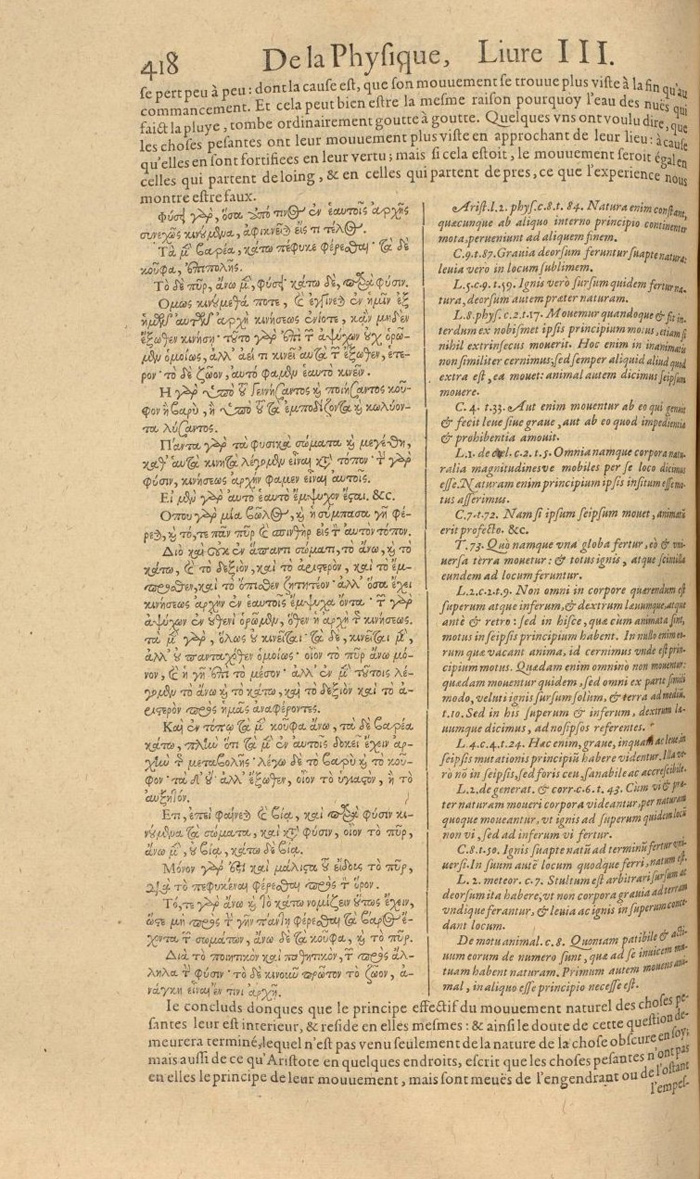 418 De la Physique, Liure III.
se pert peu à peu : dont la cause est, que son mouuement se trouue plus viste à la fin qu'au
commancement. Et cela peut bien estre la mesme raison pourquoy l'eau des nuës qui
faict la pluye, tombe ordinairement goutte à goutte. Quelques vns ont voulu dire, que
les choses pesantes ont leur mouuement plus viste en approchant de leur lieu : à cause
qu'elles en sont fortifiees en leur vertu; mais si cela estoit, le mouuement seroit égal en
celles qui partent de loing, & en celles qui partent de pres, ce que l'experience nous
montre estre faux.
Φύσει γὰρ, ὅσα ἀπό τινος ἐν ἑαυτοῖς ἀρχῆς
συνεχῶς κινούμενα, ἀφικνεῖται εἴς τι τέλος.
Τὰ μὲν βαρέα, κάτω πέφυκε φέρεσθαι· τὰ δὲ
κοῦφα, ἐπιπολῆς.
Τὸ δὲ πῦρ, ἄνω μὲν, φύσει· κάτω δὲ, παρὰ φύσιν.
Ομως κινούμεθά ποτε, καὶ ἐγγίνεται ἐν ἡμῖν ἐξ
ἡμῶν αὐτῶν ἀρχὴ κινήσεως ἐνίοτε, κἂν μηδὲν
ἔξωθεν κινήσῃ· τοῦτο γὰρ ἐπὶ τῶν ἀψύχων οὐχ ὁρῶ-
μεν ὁμοίως, ἀλλ' ἀεί τι κινεῖ αὐτὰ τῶν ἔξωθεν, ἕτε-
ρον· τὸ δὲ ζῶον, αὐτό φαμεν ἑαυτὸ κινεῖν.
Η γὰρ ὑπὸ τοῦ γεννήσαντος καὶ ποιήσαντος κοῦ-
φον ἢ βαρὺ, ἢ ὑπὸ τοῦ τὰ ἐμποδίζοντα καὶ κωλύον-
τα λύσαντος.
Πάντα γὰρ τὰ φυσικὰ σώματα καὶ μεγέθη,
καθ' αὑτὰ κινητὰ λέγομεν εἶναι κατὰ τόπον· τὴν γὰρ
φύσιν, κινήσεως ἀρχὴν φαμεν εἶναι αὐτοῖς.
Εἰ μὲν γὰρ αὐτὸ ἑαυτὸ ἔμψυχον ἔσται. &c.
Οπου γὰρ μία βῶλος, καὶ ἡ σύμπασα γῆ φέ-
ρεται, καὶ τό, τε πᾶν πῦρ καὶ σπινθὴρ εἰς τὸν αὐτὸν τόπον.
Διὸ καὶ οὐκ ἐν ἅπαντι σώματι, τὸ ἄνω, καὶ τὸ
κάτω, καὶ τὸ δεξιὸν, καὶ τὸ ἀριστερὸν, καὶ τὸ ἔμ-
προσθεν, καὶ τὸ ὄπισθεν ζητητέον· ἀλλ' ὅσα ἔχει
κινήσεως ἀρχὴν ἐν ἑαυτοῖς ἔμψυχα ὄντα· τῶν γὰρ
ἀψύχων ἐν οὐθενὶ ὁρῶμεν, ὅθεν ἡ ἀρχὴ τῆς κινήσεως.
τὰ μὲν γὰρ, ὅλως οὐ κινεῖται· τὰ δὲ, κινεῖται μὲν,
ἀλλ' οὐ πανταχόθεν ὁμοίως· οἷον τὸ πῦρ ἄνω μό-
νον, καὶ ἡ γῆ ἐπὶ τὸ μέσον· ἀλλ' ἐν μὲν τούτοις λέ-
γομεν τὸ ἄνω καὶ τὸ κάτω, καὶ τὸ δεξιὸν καὶ τὸ ἀ-
ριστερὸν πρὸς ἡμᾶς ἀναφέροντες.
Καὶ ἐν τόπῳ τὰ μὲν κοῦφα ἄνω, τὰ δὲ βαρέα
κάτω, πλὴν ὅτι τὰ μὲν ἐν αὑτοῖς δοκεῖ ἔχειν ἀρ-
χὴν τῆς μεταβολῆς· λέγω δὲ τὸ βαρὺ καὶ τὸ κοῦ-
φον· τὰ δ' οὔ· ἀλλ' ἔξωθεν, οἷον τὸ ὑγιαστὸν, ἢ τὸ
αὐξητόν.
Ετι, ἐπεὶ φαίνεται καὶ βίᾳ, καὶ παρὰ φύσιν κι-
νούμενα τὰ σώματα, καὶ κατὰ φύσιν, οἷον τὸ πῦρ,
ἄνω μὲν, οὐ βίᾳ, κάτω δὲ βίᾳ.
Μόνον γάρ ἐστι καὶ μάλιστα τοῦ εἴδους τὸ πῦρ,
διὰ τὸ πεφυκέναι φέρεσθαι πρὸς τὸν ὅρον.
Τό, τε γὰρ ἄνω καὶ τὸ κάτω νομίζειν οὕτως ἔχειν,
ὥστε μὴ πρὸς τὴν γῆν πάντη φέρεσθαι τὰ βάρος ἔ-
χοντα τῶν σωμάτων, ἄνω δὲ τὰ κοῦφα, καὶ τὸ πῦρ.
Διὰ τὸ ποιητικὸν καὶ παθητικὸν, τὴν πρὸς ἄλ-
ληλα τὴν φύσιν· τὸ δὲ κινοῦν πρῶτον τὸ ζῶον, ἀ-
νάγκη εἶναι ἔν τινι ἀρχῇ.
Arist. l. 2. phys. c. 8. t. 84. Natura enim constant,
quæcunque ab aliquo interno principio continenter
mota, perueniunt ad aliquem finem.
C. 9. t. 87. Grauia deorsum feruntur suapte natura:
leuia vero in locum sublimem.
L. 5. c. 9. t. 59. Ignis verò sursum quidem fertur na-
tura, deorsum autem prater naturam.
L. 8. phys. c. 2. t. 17. Mouemur quandoque & fit in-
terdum ex nobismet ipsis principium motus, etiam si
nihil extrinsecus mouerit. Hoc enim in inanimatis
non similiter cernimus; sed semper aliquid aliud quod
extra est, ea mouet: animal autem dicimus seipsum
mouere.
C. 4. t. 33. Aut enim mouentur ab eo qui genuit
& fecit leue siue graue, aut ab eo quod impedientia
& prohibentia amouit.
L. 1. de cœl. c. 2. t. 5. Omnia namque corpora natu-
ralia magnitudinesve mobiles per se loco dicimus
esse. Naturam enim principium ipsis insitum esse mo-
tus asserimus.
C. 7. t. 72. Nam si ipsum seipsum mouet, animatũ
erit profecto. &c.
T. 73. Quò namque vna globa fertur, eò & vni-
uersa terra mouetur: & totus ignis, atque scintilla
eundem ad locum feruntur.
L. 2. c. 2. t. 9. Non omni in corpore quærendum est
superum atque inferum, & dextrum lauumque, atque
antè & retro: sed in hisce, quæ cùm animata sint,
motus in seipsis principium habent. In nullo enim eo-
rum quæ vacant anima, id cernimus vnde est prin-
cipium motus. Quædam enim omninò non mouentur:
quædam mouentur quidem, sed omni ex parte simili
modo, veluti ignis sursum solùm, & terra ad mediũ.
t. 10. Sed in his superum & inferum, dextrum la-
uumque dicimus, ad nosipsos referentes.
L. 4. c. 4. t. 24. Hac enim, graue, inquam ac leue in
seipsis mutationis principiũ habere videntur. Illa ve-
rò nõ in seipsis, sed foris ceu, sanabile ac accrescibile.
L. 2. de generat. & corr. c. 6. t. 43. Cùm vi & pra-
ter naturam moueri corpora videantur, per naturam
quoque moueantur, vt ignis ad superum quidem locũ
non vi, sed ad inferum vi fertur.
C. 8. t. 50. Ignis suapte naturâ ad terminũ fertur vni-
uersi. In suum autẽ locum quodque ferri, natum est.
L. 2. meteor. c. 7. Stultum est arbitrari sursum ac
deorsum ita habere, vt non corpora grauia ad terram
vndique ferantur, & leuia ac ignis in superum conce-
dant locum.
De motu animal. c. 8. Quoniam patibile & acti-
uum eorum de numero sunt, quæ ad se inuicem mu-
tuam habent naturam. Primum autem mouens ani-
mal, in aliquo esse principio necesse est.
Ie concluds donques que le principe effectif du mouuement naturel des choses pe-
santes leur est interieur, & reside en elles mesmes : & ainsi le doute de cette question de-
meurera terminé, lequel n'est pas venu seulement de la nature de la chose obscure en soy;
mais aussi de ce qu'Aristote en quelques endroits, escrit que les choses pesantes n'ont pas
en elles le principe de leur mouuement, mais sont meuës de l'engendrant ou de l'ostant
l'empes-